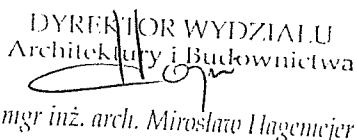 DYREKTOR WYDZIAŁU
Architektury i Budownictwa
mgr inż. arch. Mirosław Hagemejer